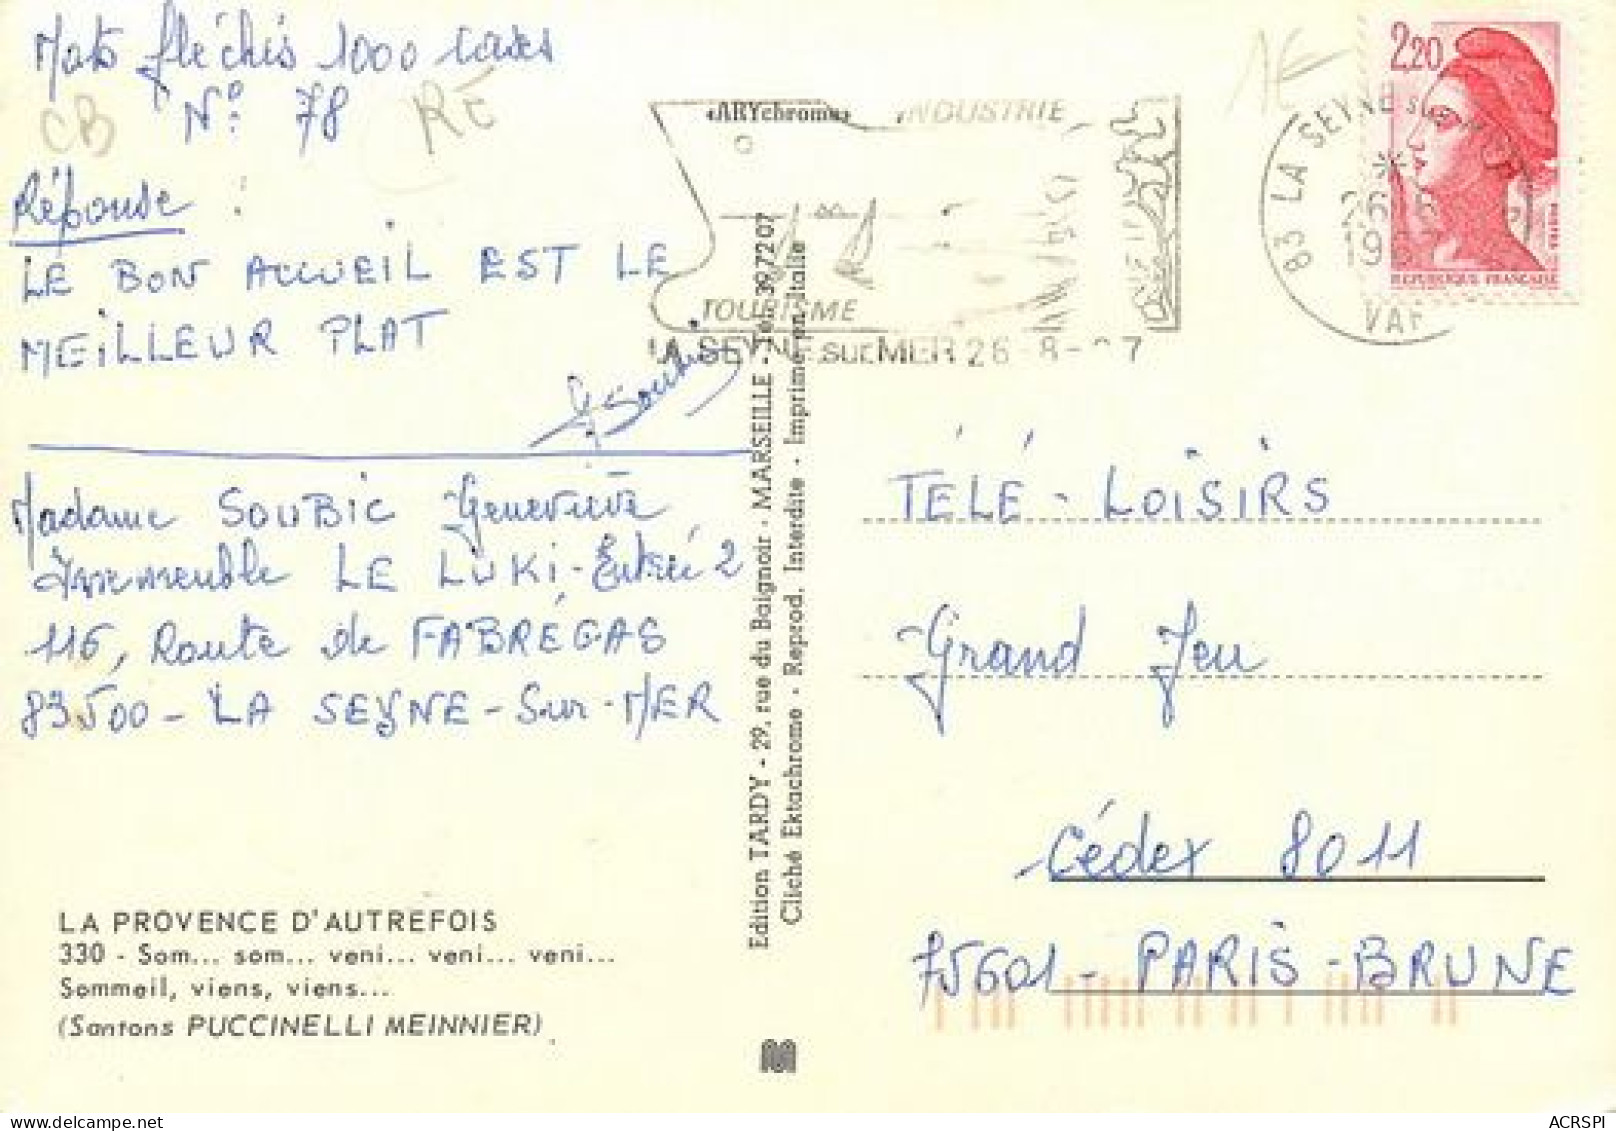 Mots fléchis 1000 cases
N°: 78
CB
RE
Réponse :
LE BON ACCUEIL EST LE
MEILLEUR PLAT
GSoubic
Madame SOUBIC Geneviève
Immeuble LE LUKi-Entrée 2
116, Route de FABRÉGAS
83500 - LA SEYNE-Sur-MER
LA PROVENCE D'AUTREFOIS
330 - Som... som... veni... veni... veni...
Sommeil, viens, viens...
(Santons PUCCINELLI MEINNIER)
Edition TARDY - 29, rue du Baignoir - MARSEILLE - Tél. 39/7207
Cliché Ektachrome - Reprod. Interdite - Imprimé en Italie
«ARYchrome»
INDUSTRIE
TOURISME
LA SEYNE SUR MER 26-8-87
83 LA SEYNE SUR MER
1987
VAR
2,20
REPUBLIQUE FRANÇAISE
TÉLÉ - LOiSiRS
Grand Jeu
Cédex 8011
75601 - PARiS - BRUNE
ACRSPI